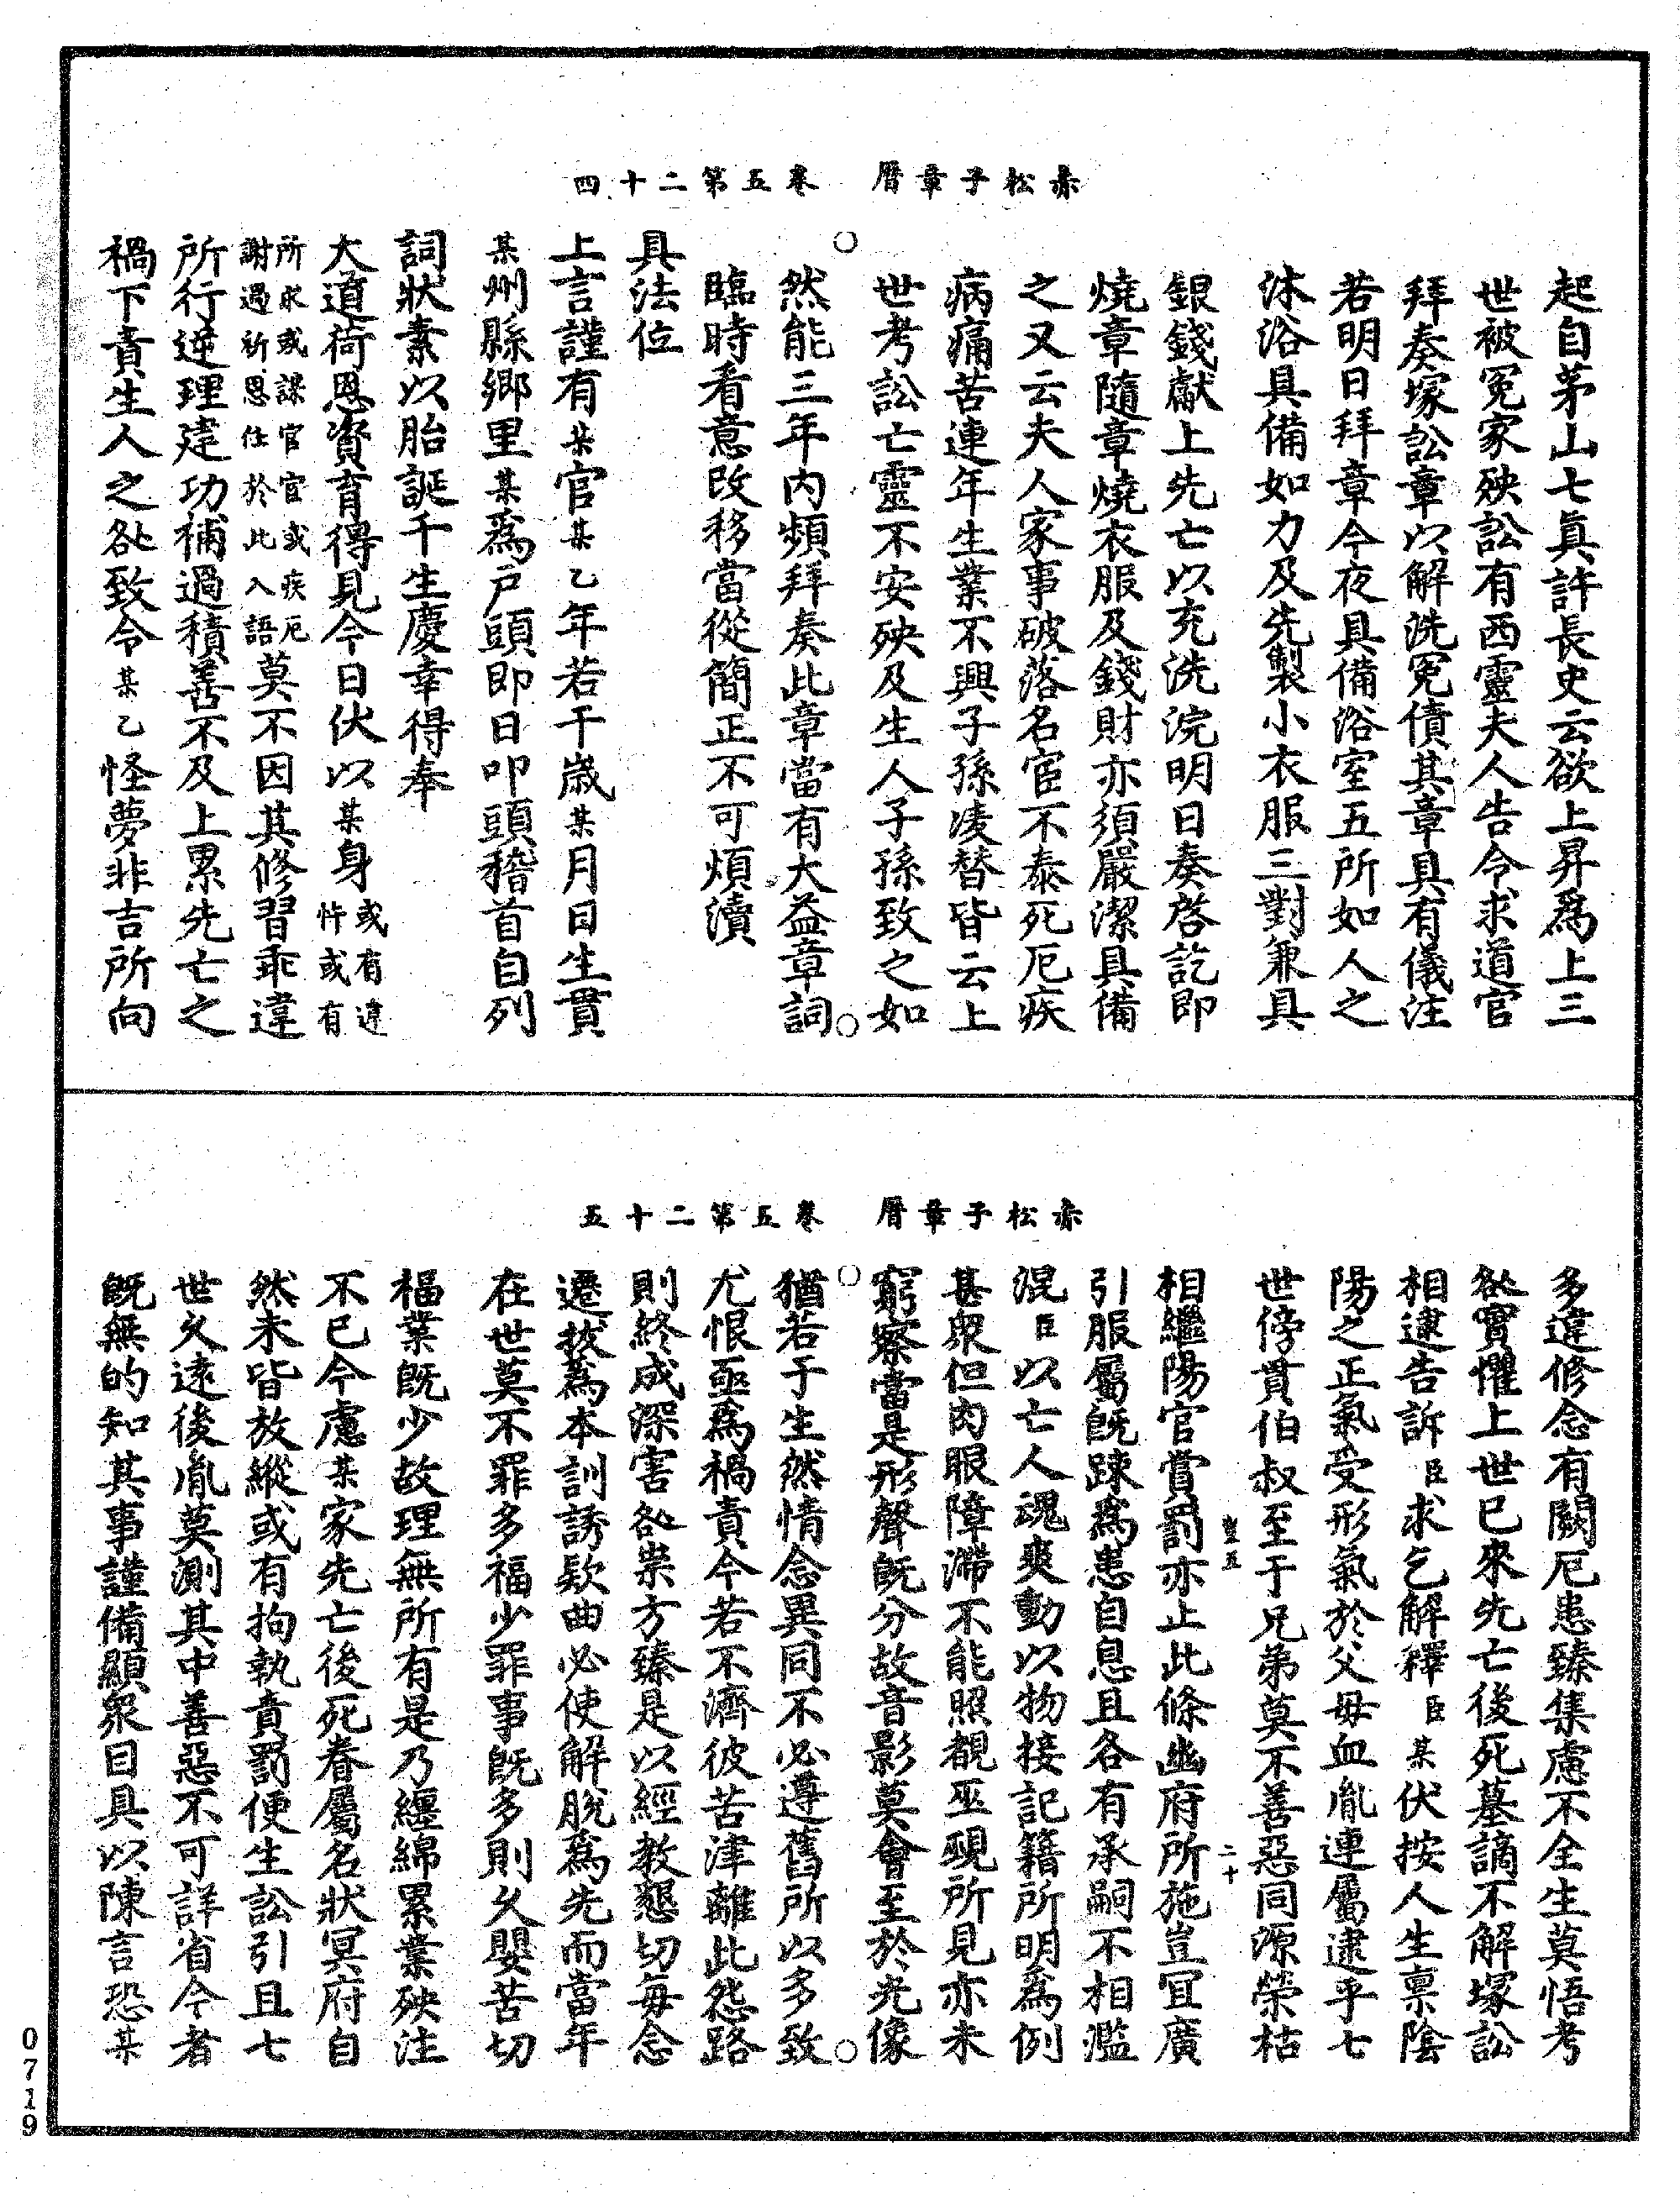 赤松子章曆　卷五第二十四
起自茅山七眞許長史云欲上昇爲上三
世被冤家殃訟有西靈夫人告令求道官
拜奏塚訟章以解洗冤債其章具有儀注
若明日拜章今夜具備浴室五所如人之
沐浴具備如力及先製小衣服三對兼具
銀錢獻上先亡以充洗浣明日奏啓訖即
燒章隨章燒衣服及錢財亦須嚴潔具備
之又云夫人家事破落名宦不泰死厄疾
病痛苦連年生業不興子孫凌替皆云上
世考訟亡靈不安殃及生人子孫致之如
然能三年內頻拜奏此章當有大益章詞
臨時看意改移當從簡正不可煩瀆
具法位
上言謹有某官某乙年若干歲某月日生貫
某州縣鄉里某爲戶頭即日叩頭稽首自列
詞狀素以胎誕千生慶幸得奉
大道荷恩資育得見今日伏以某身或有違忤或有
所求或謀官宦或疾厄謝過祈恩任於此入語莫不因其修習乖違
所行逆理建功補過積善不及上累先亡之
禍下責生人之咎致令某乙怪夢非吉所向
赤松子章曆　卷五第二十五
多違修念有闕厄患臻集慮不全生莫悟考
咎實懼上世已來先亡後死墓謫不解塚訟
相逮告訴臣求乞解釋臣某伏按人生禀陰
陽之正氣受形氣於父母血胤連屬逮乎七
世傍貫伯叔至于兄弟莫不善惡同源榮枯
相繼陽官賞罰亦止此條幽府所施豈宜廣
引服屬旣踈爲患自息且各有承嗣不相濫
混臣以亡人魂爽動以物接記籍所明爲例
甚衆但肉眼障滯不能照覩巫覡所見亦未
窮察當是形聲旣分故音影莫會至於光像
猶若于生然情念異同不必遵舊所以多致
尤恨亟爲禍責今若不濟彼苦津離此怨路
則終成深害咎祟方臻是以經教懇切每念
遷拔爲本訓誘欵曲必使解脫爲先而當年
在世莫不罪多福少罪事旣多則久嬰苦切
福業旣少故理無所有是乃纏綿累業殃注
不已今慮某家先亡後死眷屬名狀冥府自
然未皆放縱或有拘執責罰便生訟引且七
世久遠後胤莫測其中善惡不可詳省今者
旣無的知其事謹備顯衆目具以陳言恐某
二十
0719